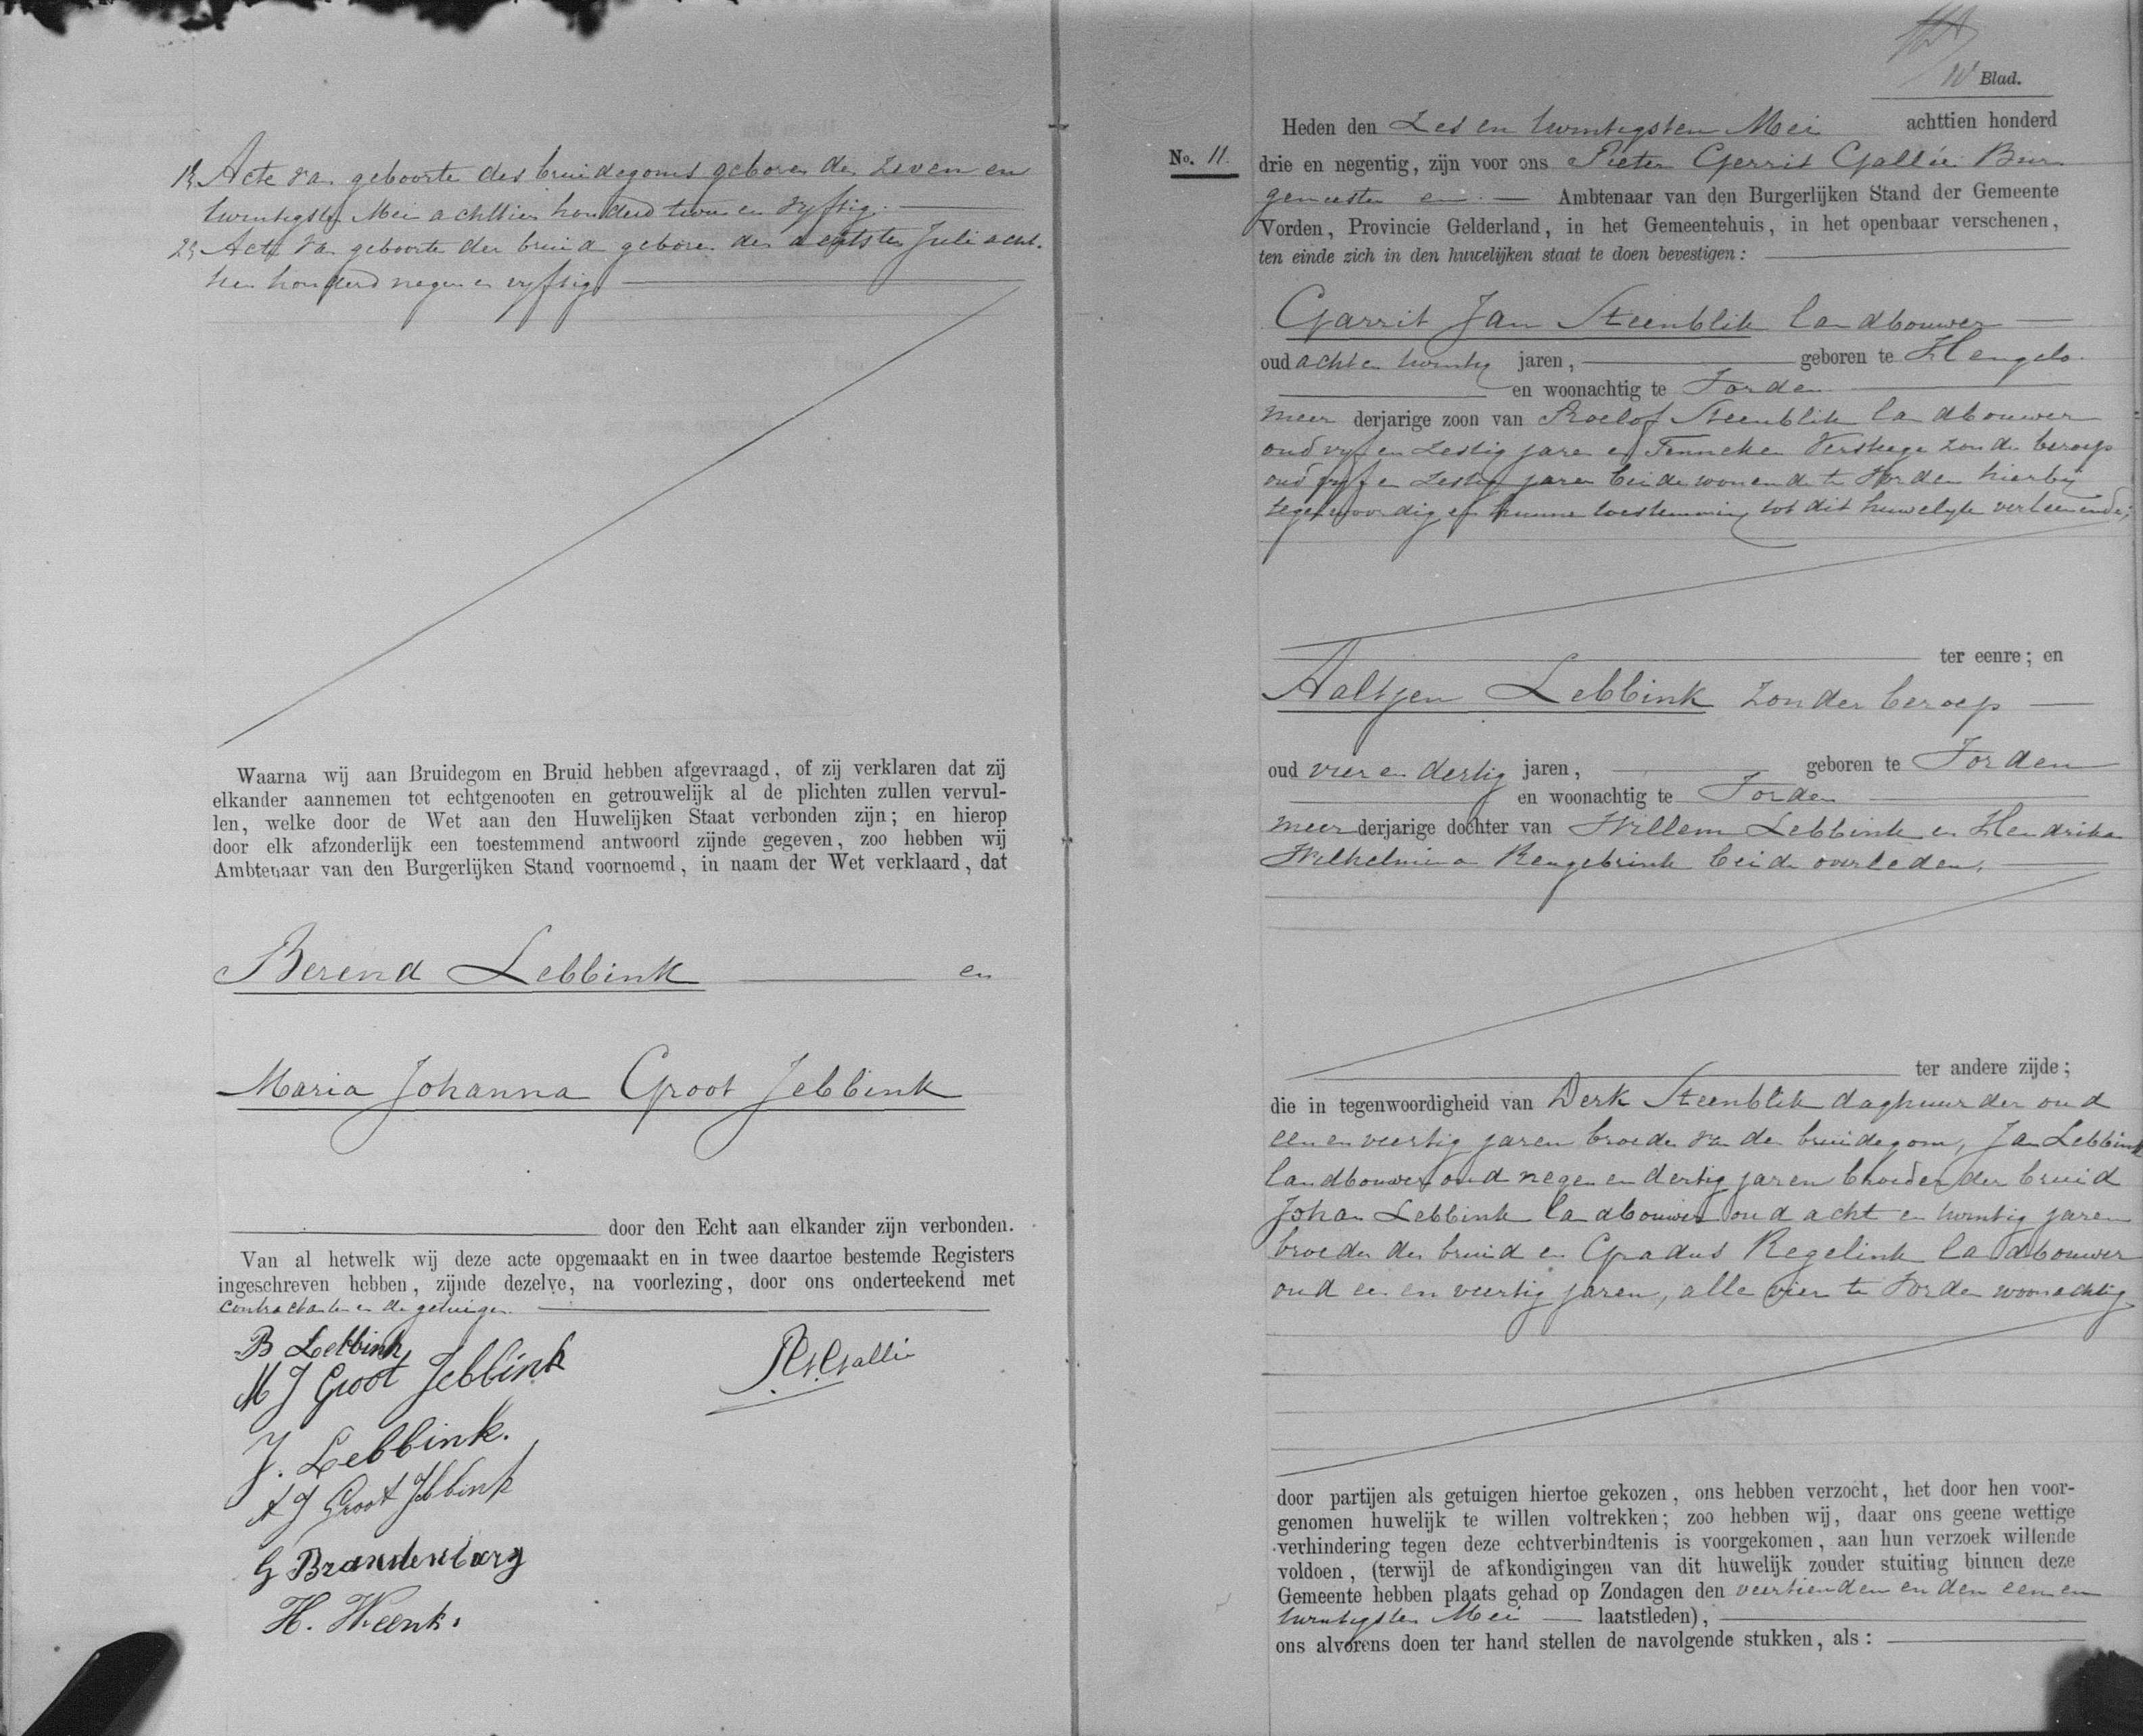 1., Acte van geboorte des bruidegoms geboren den zeven en
twintigsten Mei achttien honderd twee en vyftig.
2., Acte van geboorte der bruid geboren den achtsten Juli acht-
tien honderd negen en vyftig
Waarna wij aan Bruidegom en Bruid hebben afgevraagd, of zij verklaren dat zij
elkander aannemen tot echtgenooten en getrouwelijk al de plichten zullen vervul-
len, welke door de Wet aan den Huwelijken Staat verbonden zijn; en hierop
door elk afzonderlijk een toestemmend antwoord zijnde gegeven, zoo hebben wij
Ambtenaar van den Burgerlijken Stand voornoemd, in naam der Wet verklaard, dat
Berend Lebbink en
Maria Johanna Groot Jebbink
door den Echt aan elkander zijn verbonden.
Van al hetwelk wij deze acte opgemaakt en in twee daartoe bestemde Registers
ingeschreven hebben, zijnde dezelve, na voorlezing, door ons onderteekend met
contractanten en de getuigen.
B Lebbink
M J Groot Jebbink
PGGallée
J. Lebbink.
A J Groot Jebbink
G Brandenbarg
H. Weenk.
Blad.
Heden den Zes en twintigsten Mei achttien honderd
No. 11. drie en negentig, zijn voor ons Pieter Gerrit Gallée Bur-
gemeester en Ambtenaar van den Burgerlijken Stand der Gemeente
Vorden, Provincie Gelderland, in het Gemeentehuis, in het openbaar verschenen,
ten einde zich in den huwelijken staat te doen bevestigen:
Garrit Jan Steenblik landbouwer
oud acht en twintig jaren, geboren te Hengelo
en woonachtig te Vorden
meer derjarige zoon van Roelof Steenblik landbouwer
oud vyf en zestig jaren en Tenneken Versteege zonder beroep
oud vyf en zestig jaren beide wonende te Vorden hierby
tegenwoordig en hunne toestemming tot dit huwelyk verleenende;
ter eenre; en
Aaltjen Lebbink zonder beroep
oud vier en dertig jaren, geboren te Vorden
en woonachtig te Vorden
meer derjarige dochter van Willem Lebbink en Hendrika
Wilhelmina Rengebrink beide overleden.
ter andere zijde;
die in tegenwoordigheid van Derk Steenblik daghuurder oud
een en veertig jaren broeder van den bruidegom, Jan Lebbink
landbouwer oud negen en dertig jaren broeder der bruid
Johan Lebbink landbouwer oud acht en twintig jaren
broeder der bruid en Gradus Regelink landbouwer
oud een en veertig jaren, alle vier te Vorden woonachtig
door partijen als getuigen hiertoe gekozen, ons hebben verzocht, het door hen voor-
genomen huwelijk te willen voltrekken; zoo hebben wij, daar ons geene wettige
verhindering tegen deze echtverbindtenis is voorgekomen, aan hun verzoek willende
voldoen, (terwijl de afkondigingen van dit huwelijk zonder stuiting binnen deze
Gemeente hebben plaats gehad op Zondagen den veertienden en den een en
twintigsten Mei laatstleden),
ons alvorens doen ter hand stellen de navolgende stukken, als: